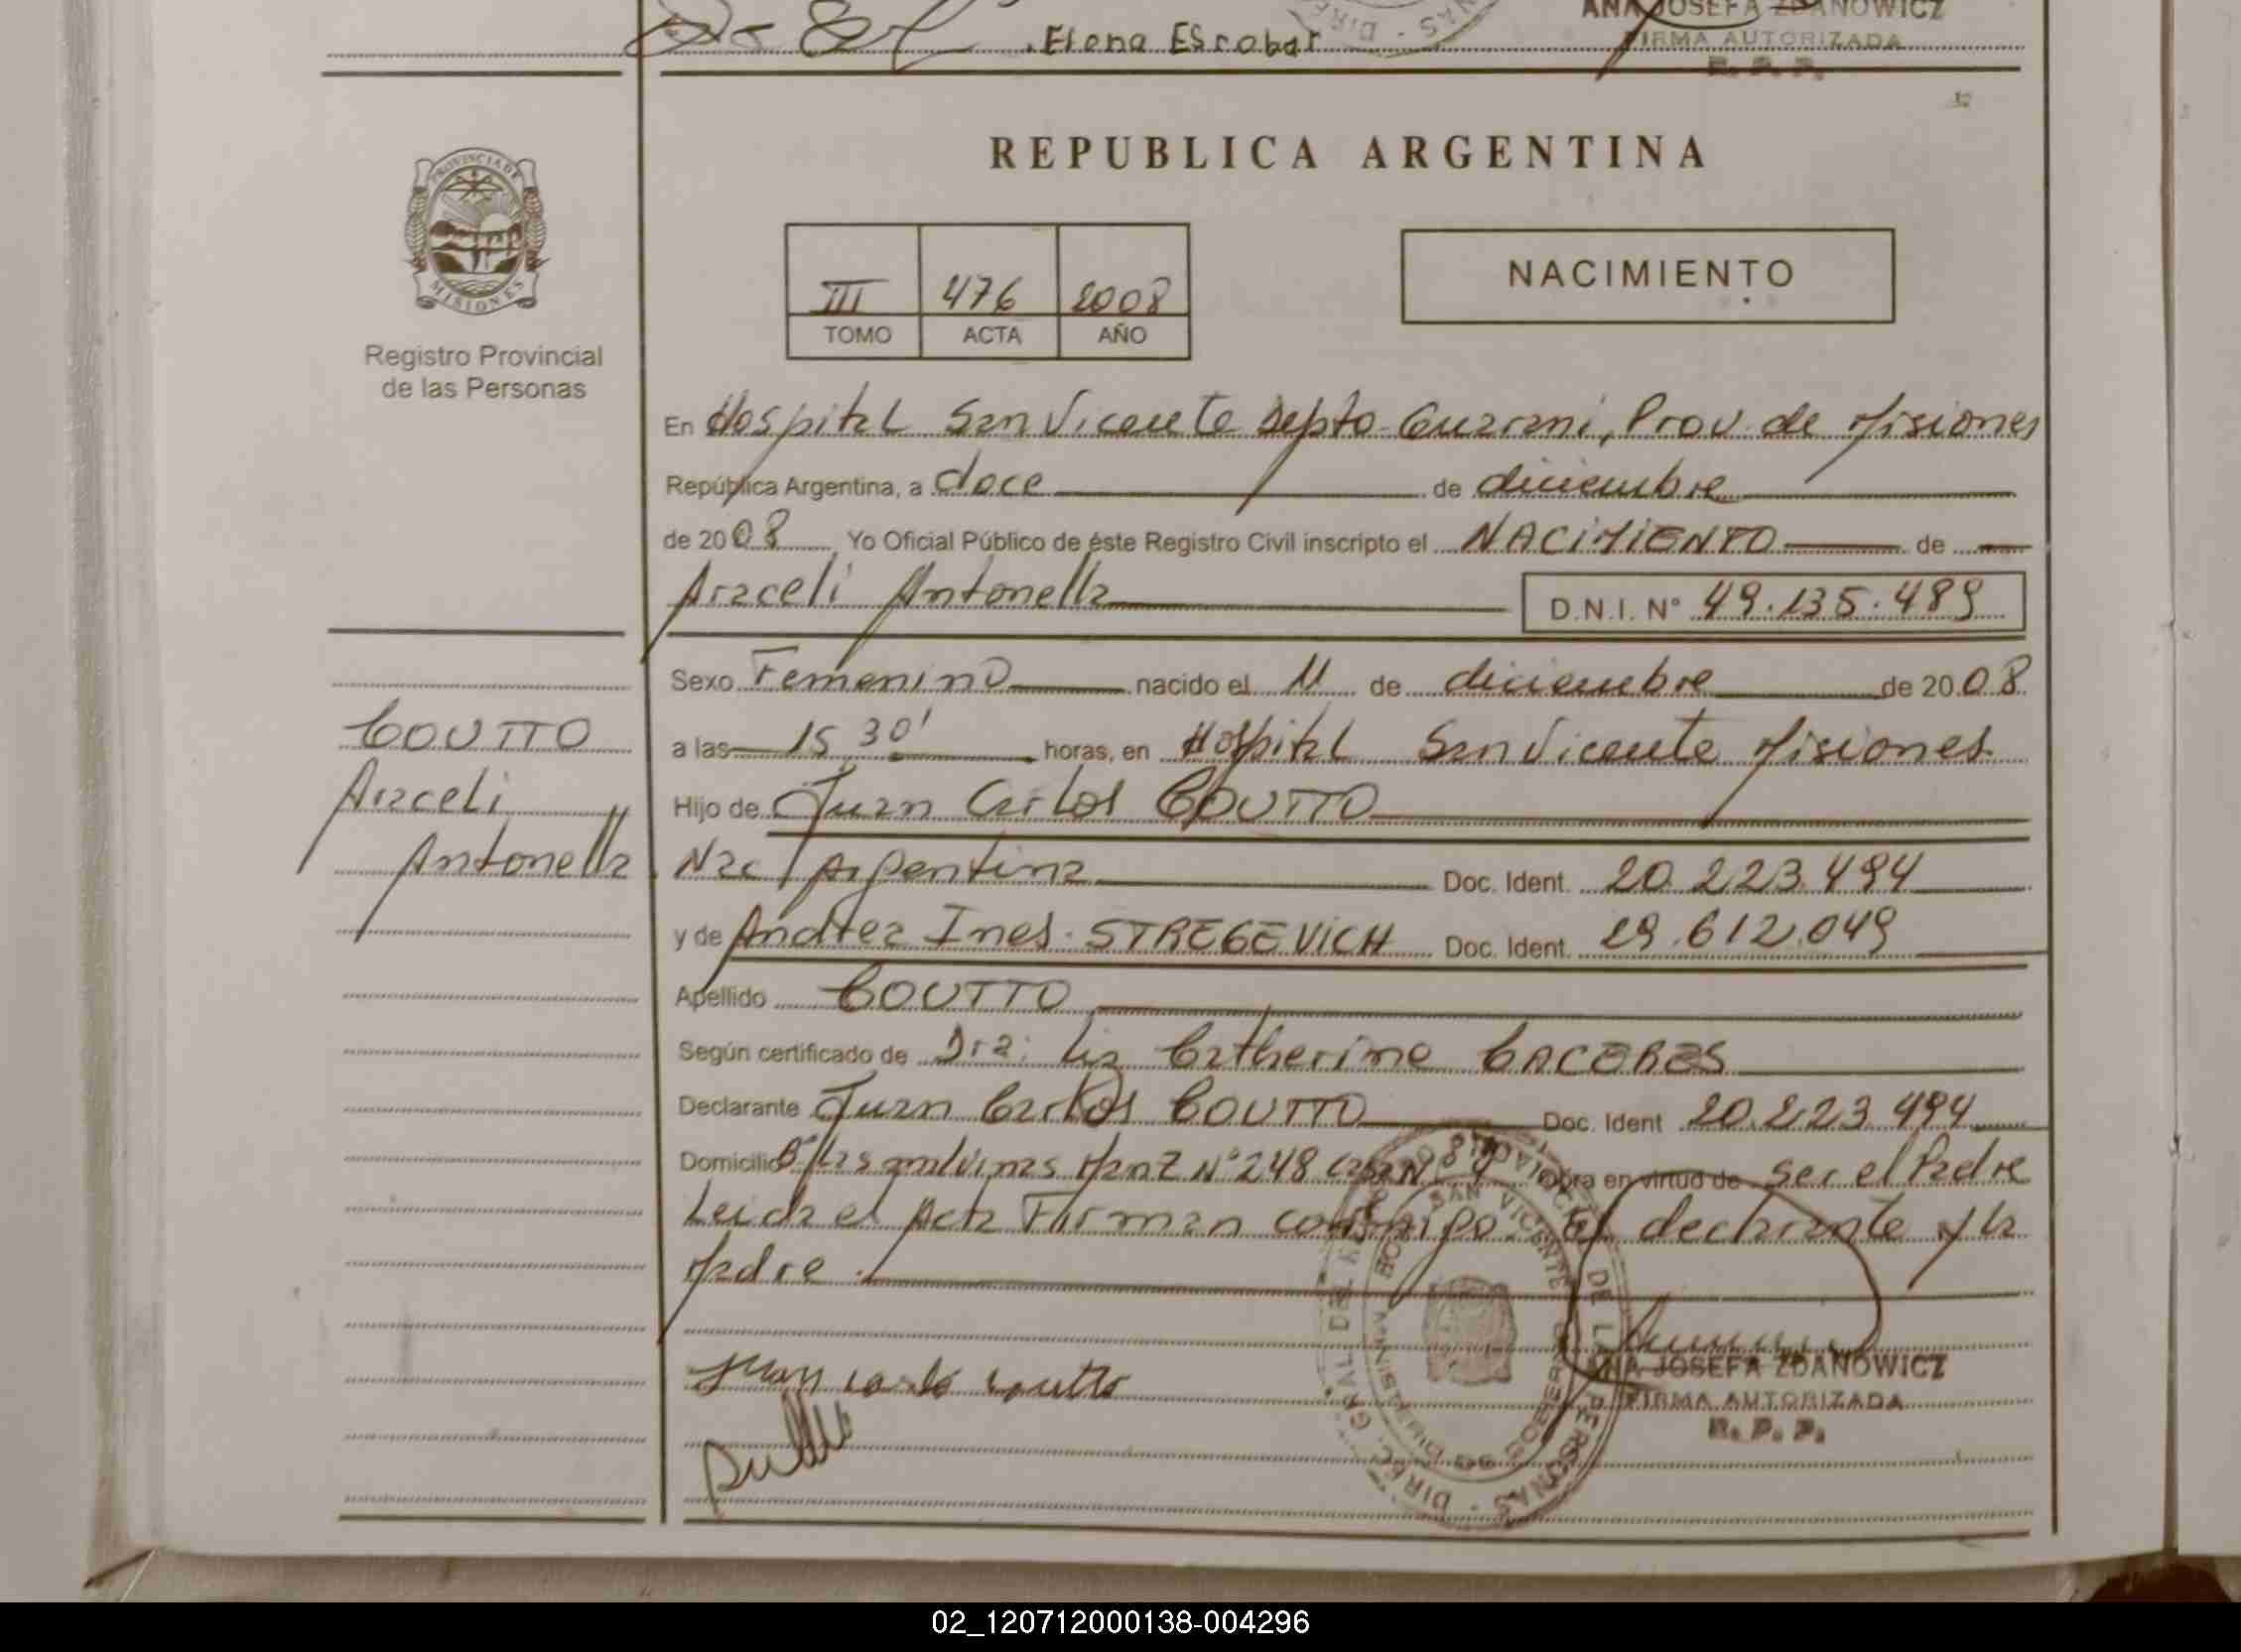 Elena Escobar
ANA JOSEFA ZDANOWICZ
FIRMA AUTORIZADA
R. P. P.
REPUBLICA ARGENTINA
PROVINCIA DE MISIONES
III 476 2008
TOMO ACTA AÑO
NACIMIENTO
Registro Provincial
de las Personas
En Hospital San Vicente Depto Guarani, Prov. de Misiones
República Argentina, a doce de diciembre
de 2008 Yo Oficial Público de éste Registro Civil inscripto el NACIMIENTO de
Araceli Antonella D.N.I. N° 49.135.489
Sexo Femenino nacido el 11 de diciembre de 2008
COUTTO
Araceli
Antonella
a las 15 30' horas, en Hospital San Vicente Misiones
Hijo de Juan Carlos COUTTO
Nac Argentina Doc. Ident. 20.223.494
y de Andrea Ines STREGEVICH Doc. Ident. 29.612.049
Apellido COUTTO
Según certificado de Dra: Liz Catherine CACERES
Declarante Juan Carlos COUTTO Doc. Ident 20.223.494
Domicilio B° Las malvinas Manz N° 248 casa N° Obra en virtud de ser el Padre
Leida el Acta Firman conmigo: El declarante y la
Madre.
Juan Carlos Coutto
ANA JOSEFA ZDANOWICZ
FIRMA AUTORIZADA
R. P. P.
02_120712000138-004296